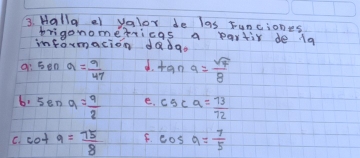 3. Halla el valor de las Funciones
trigonometricas a partir de la
información dada.
a: sen a = 9/47 d. tan a = √5/8
b. sen a = 9/2 e. csc a = 13/12
c. cot a = 15/8 f. cos a = 7/5